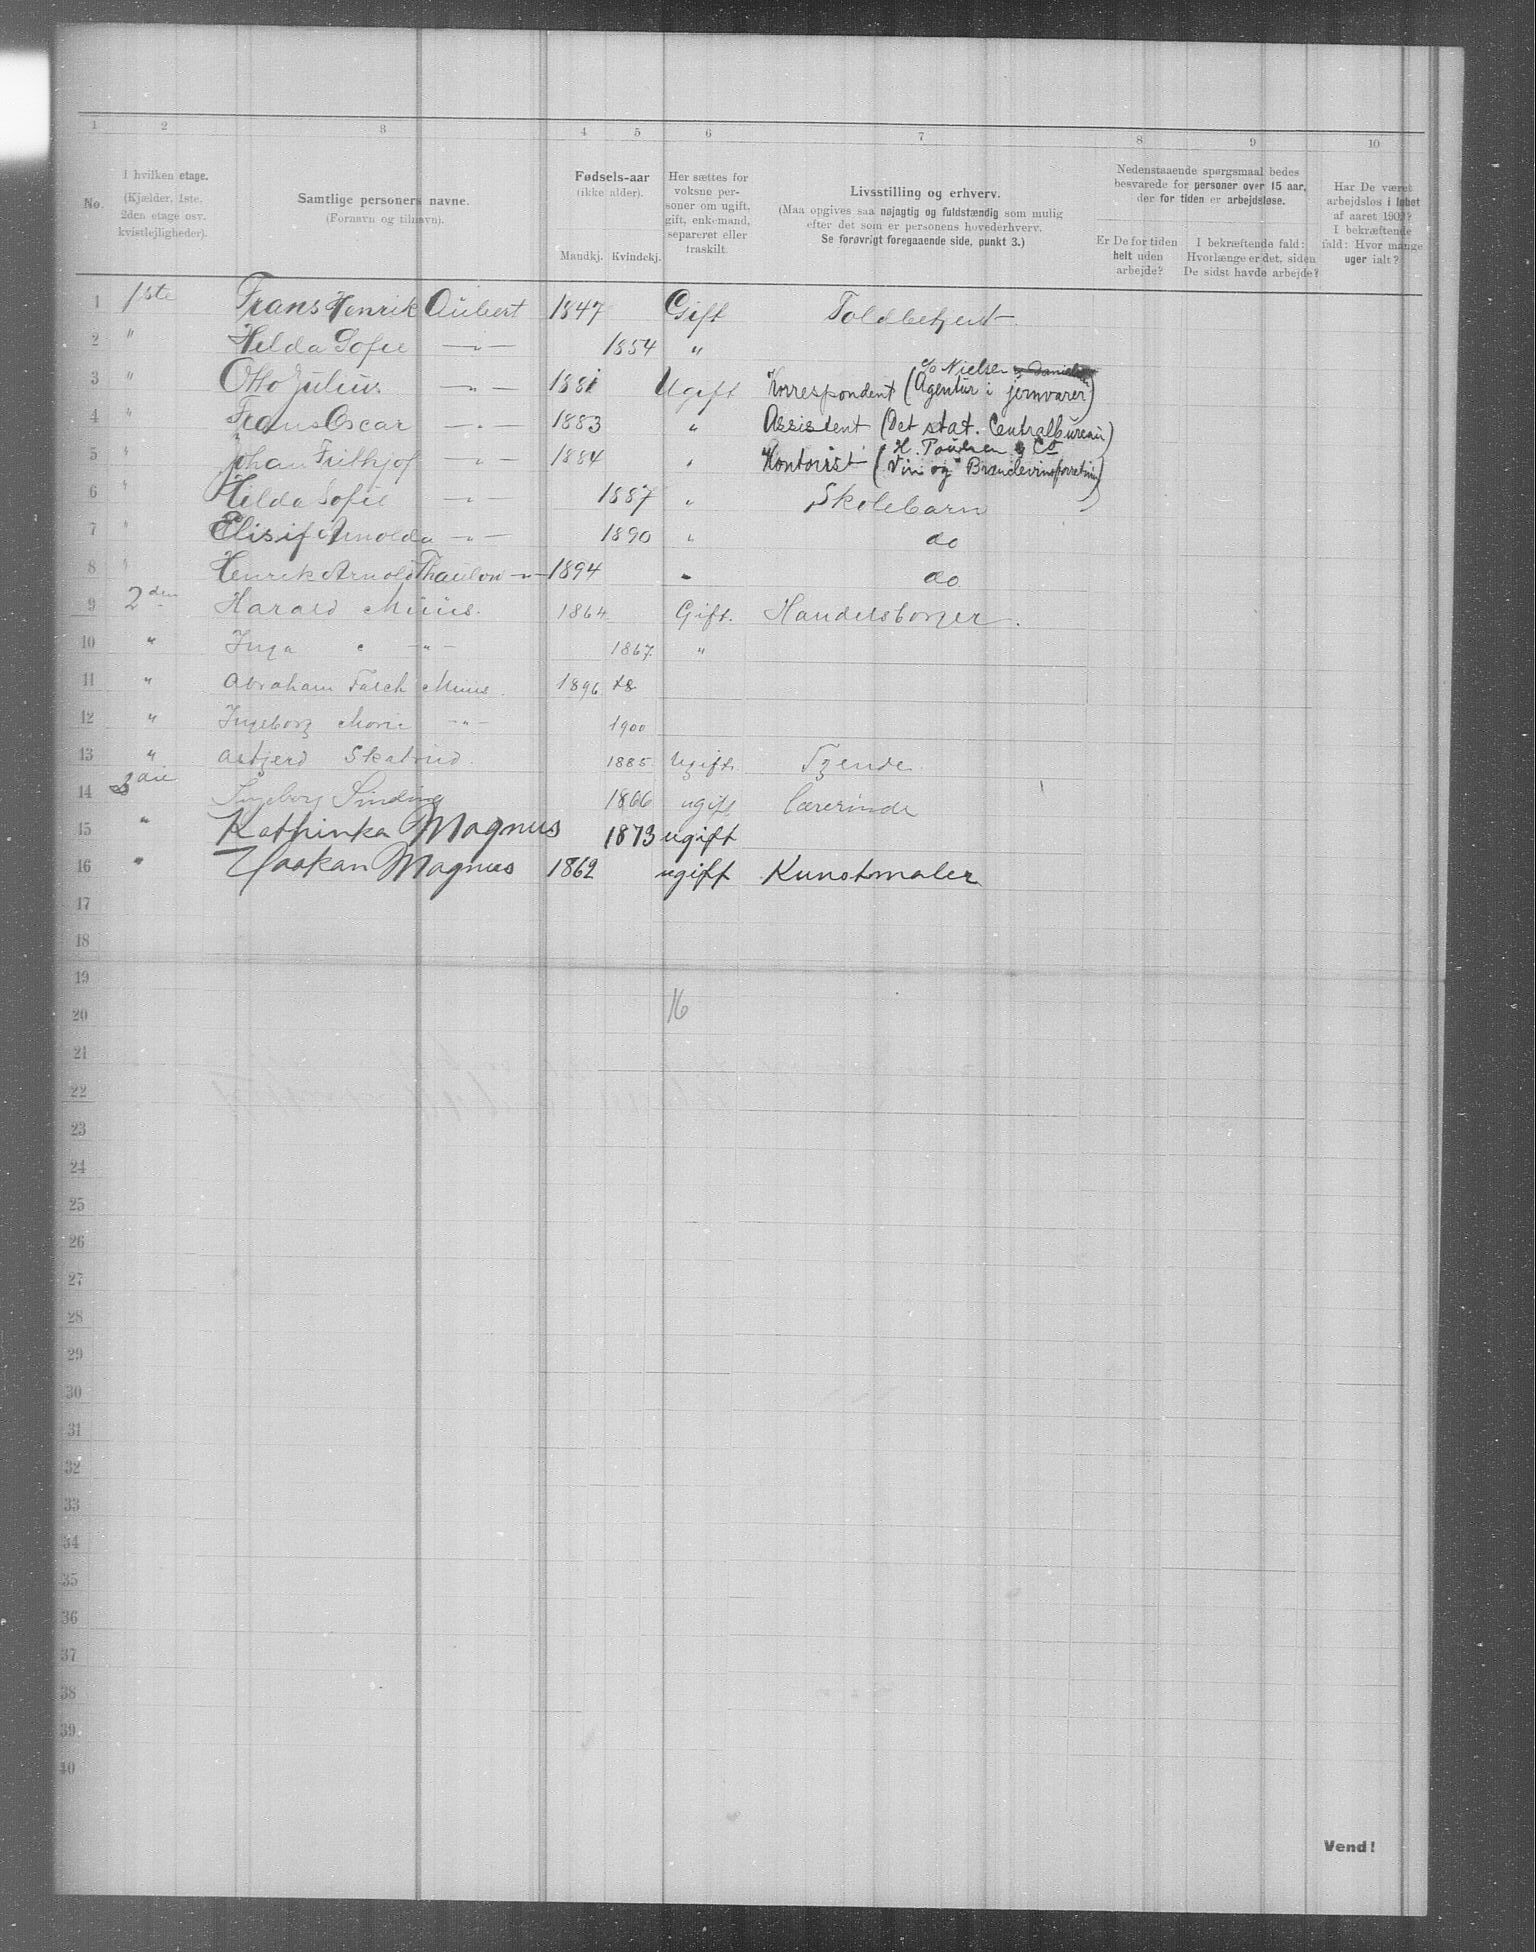 1 2 3 4 5 6 7 8 9 10
No. I hvilken etage. (Kjælder, 1ste, 2den etage osv. kvistlejligheder). Samtlige personers navne. (Fornavn og tilnavn). Fødsels-aar (ikke alder). Mandkj. Kvindekj. Her sættes for voksne personer om ugift, gift, enkemand, separeret eller fraskilt. Livsstilling og erhverv. (Maa opgives saa nøjagtig og fuldstændig som mulig efter det som er personens hovederhverv. Se forøvrigt foregaaende side, punkt 3.) Nedenstaaende spørgsmaal bedes besvarede for personer over 15 aar, der for tiden er arbejdsløse. Er De for tiden helt uden arbejde? I bekræftende fald: Hvorlænge er det, siden De sidst havde arbejde? Har De været arbejdsløs i løbet af aaret I bekræftende fald: Hvor mange uger ialt?
1 1ste Frans Henrik Aubert 1847 Gift Toldbetjent
2 " Hilda Sofie —"— 1854 "
3 " Otto Julius —"— 1881 Ugift Korrespondent (Agentur i jernvarer) c/o Nielsen
4 " Frans Oscar —"— 1883 " Assistent (Det stat. Centralbureau)
5 " Johan Frithjof —"— 1884 " Kontorist (H. Poulsen & Co Vin og Brændevinsforretning)
6 " Hilda Sofie —"— 1887 " Skolebarn
7 " Elisif Arnolda —"— 1890 " do
8 " Henrik Arnold Thaulow —"— 1894 " do
9 2den Harald Müüs. 1864 Gift. Handelsborger.
10 " Inga " —"— 1867. "
11 " Abraham Falch Müüs. 1896
12 " Ingeborg Marie —"— 1900
13 " Asbjerd Skatvid. 1885 Ugift Tjende
14 3die Ingeborg Sinding 1866 ugift Lærerinde
15 " Kathinka Magnus 1873 ugift
16 " Haakan Magnus 1862 ugift Kunstmaler
17
18
19
20 16
21
22
23
24
25
26
27
28
29
30
31
32
33
34
35
36
37
38
39
40
Vend!